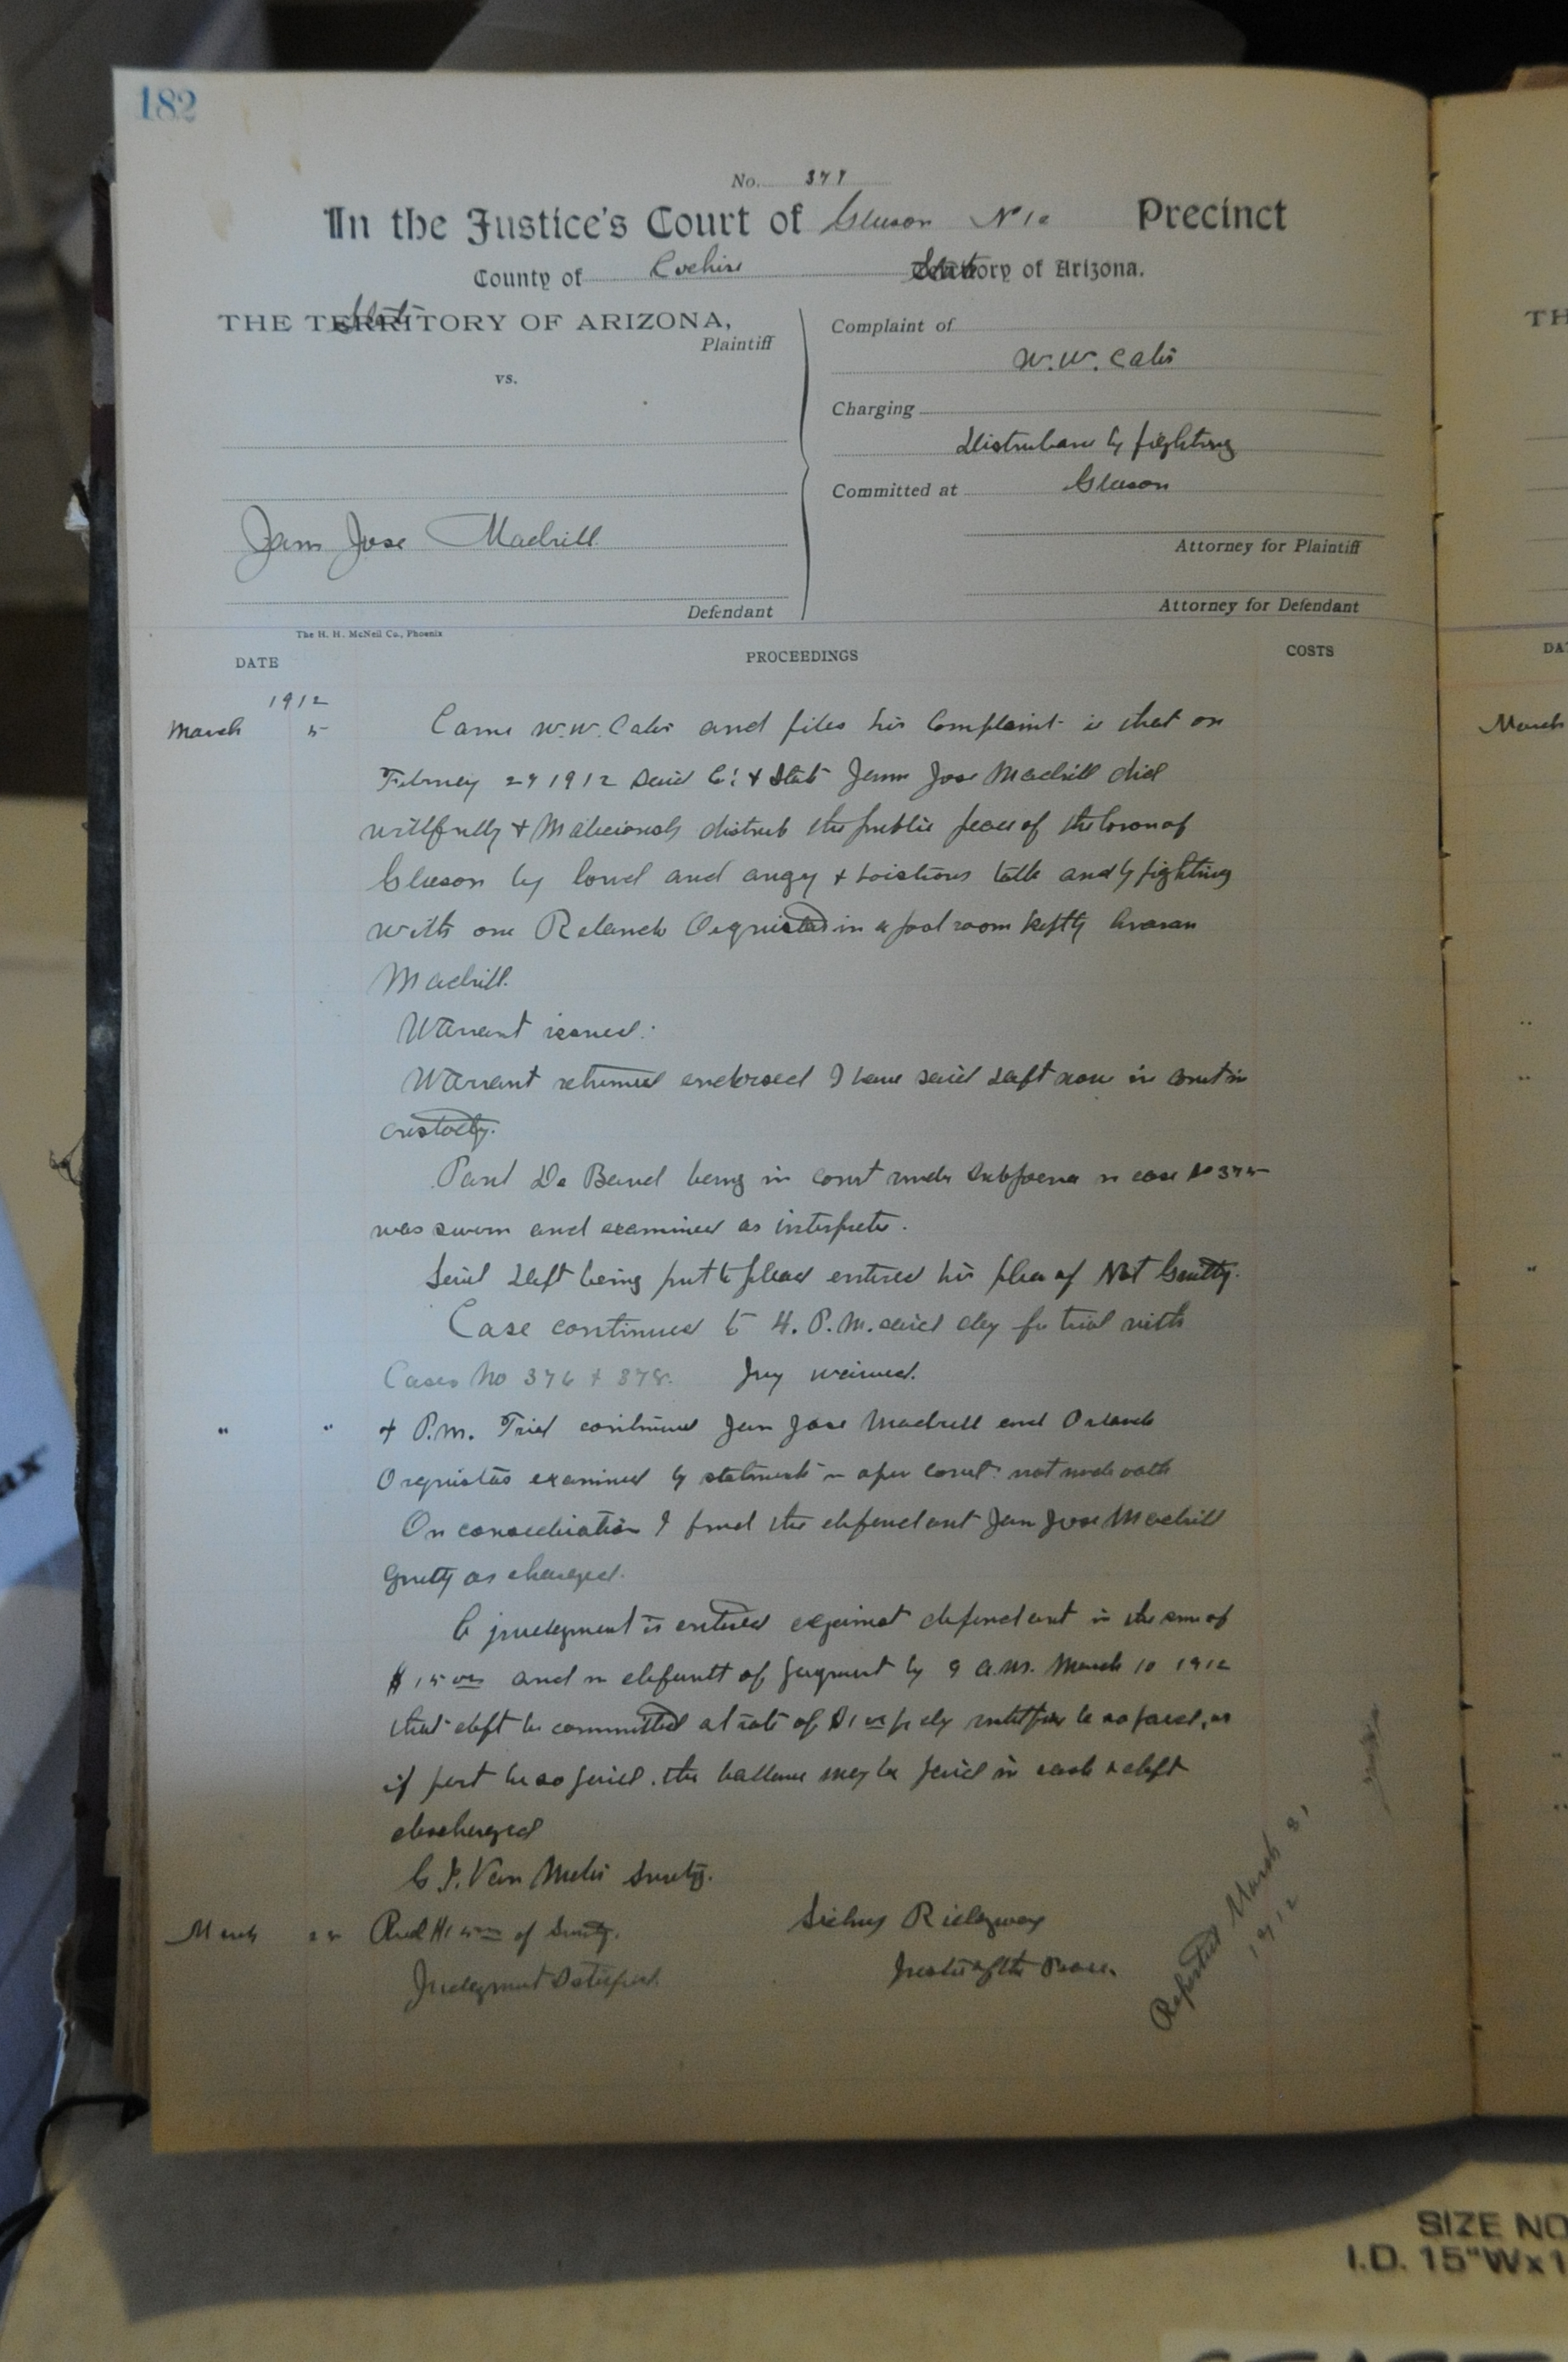 182
No. 377
In the Justice's Court of Gleeson No 10 Precinct
County of Cochise State of Arizona.
THE State OF ARIZONA,
Plaintiff
vs.
Jose Madrill
Defendant
Complaint of
W. W. Cates
Charging
Distrubance by fighting
Committed at Gleeson
Attorney for Plaintiff
Attorney for Defendant
The H. H. McNeil Co., Phoenix
DATE PROCEEDINGS COSTS
1912
March 5 Came W. W. Cates and files his Complaint that on
February 29 1912 Said Co. & State Jose Madrill did
willfully & Maliciously distrub the public peace of the town of
Gleeson by loud and angry & boistrous talk and by fighting
with one in a pool room kept by
Madrill.
Warrant issued.
Warrant returned endorsed I have said deft now in court in
custody.
Paul De Baud being in court under Subpoena in case No 375
was sworn and examined as interpreter.
Said deft being put to plead entered his plea of Not Guilty.
Case continued to 4. P.M. said day for trial with
Cases No 376 & 378. Jury waived.
" " 4 P.M. Trial continued Jose Madrill and Orlando
examined by statements in open court not under oath
On consideration I find the defendant Jose Madrill
Guilty as charged.
A judgment is entered against defendant in the sum of
$15 00 and in default of payment by 9 A.M. March 10 1912
that deft be committed at rate of $1 00 per day until fine be so paid, or
if part be so paid, the ballance may be paid in cash & deft
discharged
C. P. Van Meter Surety.
March Recd $15 00 of Surety. Ridgway
Judgment Satisfied. Justice of the Peace.
Reported March 31
1912
TH
DA
March
SIZE NO
I.D. 15"W x 1